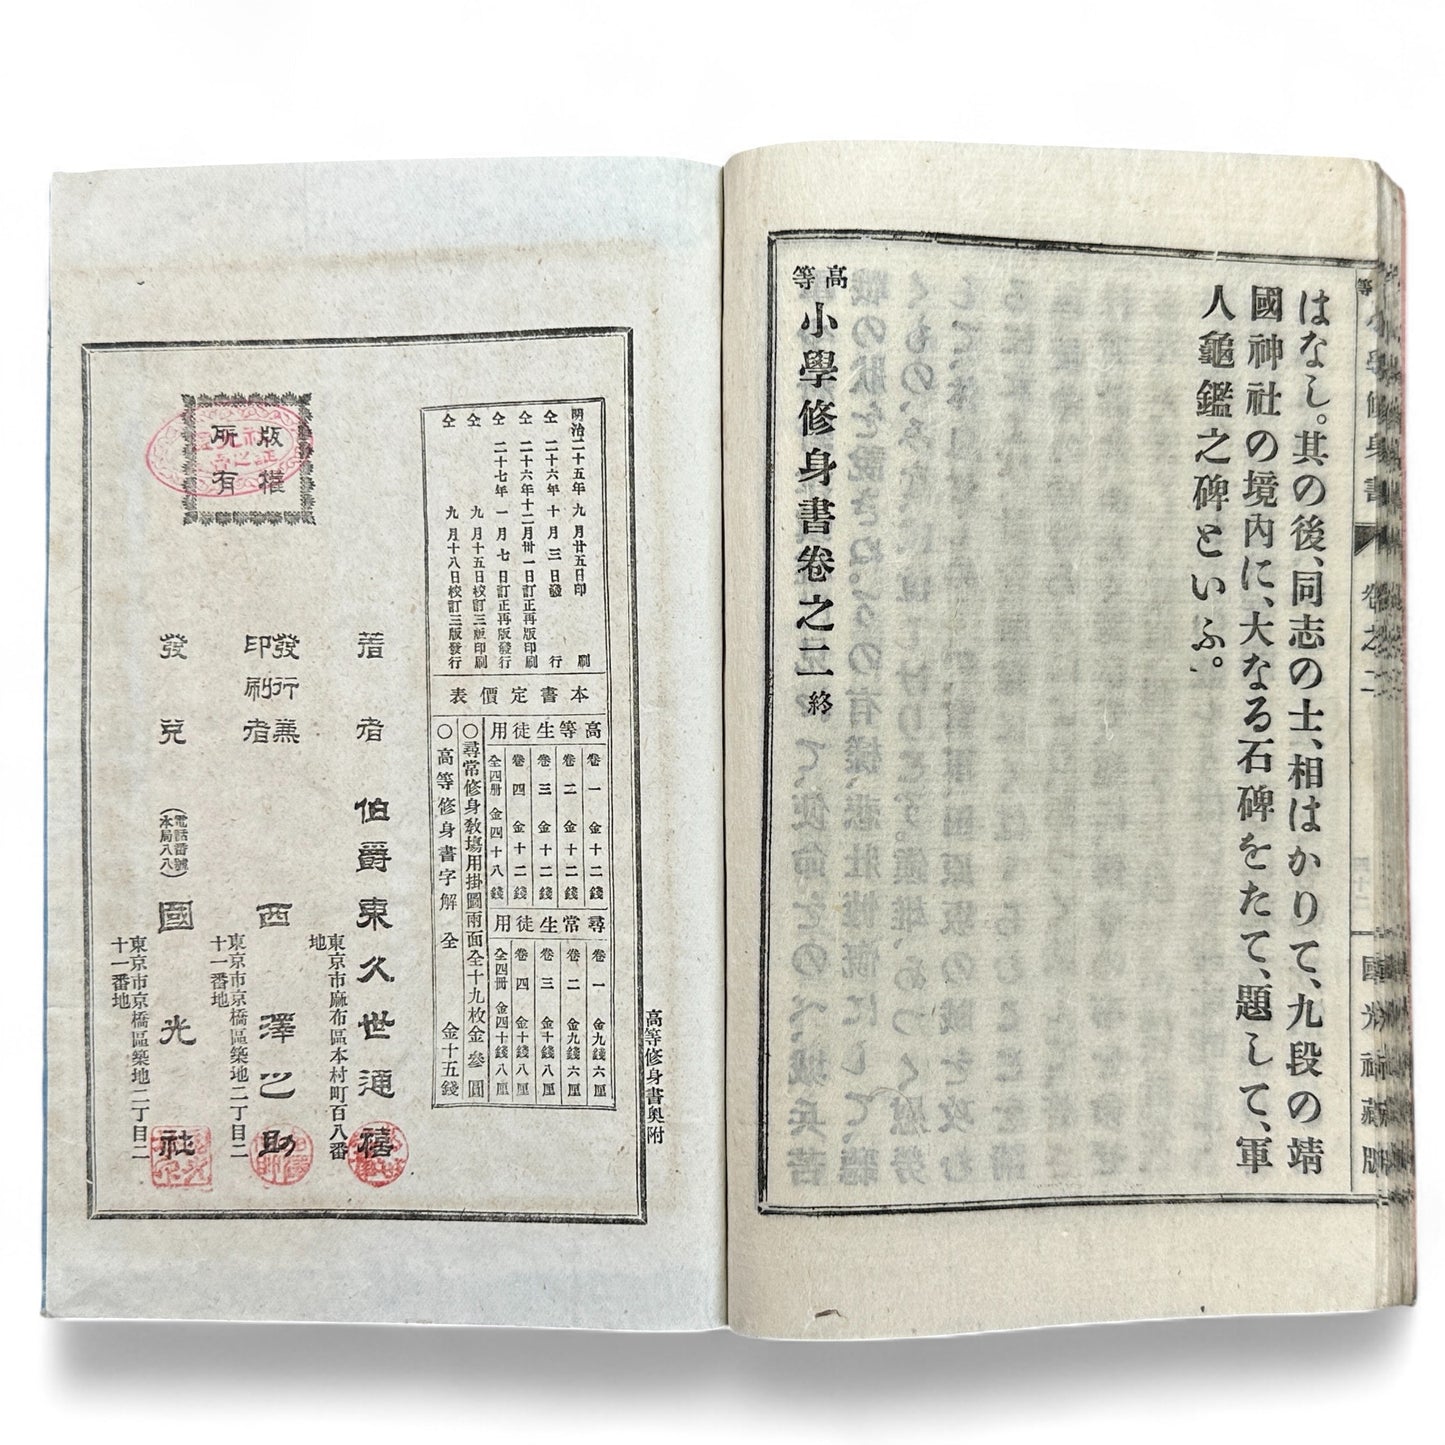 はなし。其の後、同志の士、相はかりて、九段の靖
國神社の境內に、大なる石碑をたて、題して、軍
人龜鑑之碑といふ。
高等小學修身書卷之二終
卷之二
國光社藏版
高等修身書奧附
明治二十五年九月廿五日印刷
仝二十六年十月三日發行
仝二十六年十二月卅一日訂正再版印刷
仝二十七年一月七日訂正再版發行
仝九月十五日校訂三版印刷
仝九月十八日校訂三版發行
本書定價表
高等生徒用
卷一金十二錢
卷二金十二錢
卷三金十二錢
卷四金十二錢
全四册金四十八錢
尋常生徒用
卷一金九錢六厘
卷二金九錢六厘
卷三金十錢八厘
卷四金十錢八厘
全四冊金四十錢八厘
○尋常修身敎塲用掛圖兩面全十九枚金參圓
○高等修身書字解全金十五錢
著者伯爵東久世通禧
東京市麻布區本村町百八番
地
發行兼
印刷者西澤之助
東京市京橋區築地二丁目二
十一番地
發兌(電話番號
本局八八)國光社
東京市京橋區築地二丁目二
十一番地
版權
所有